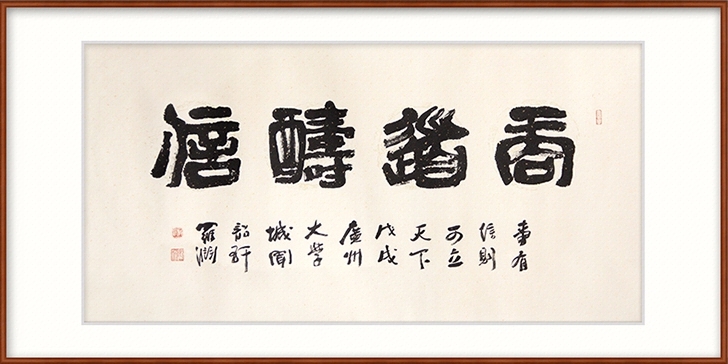 商道醻信
事有
信則
可立
天下
戊戌
廣州
大學
城聞
韶軒
羅